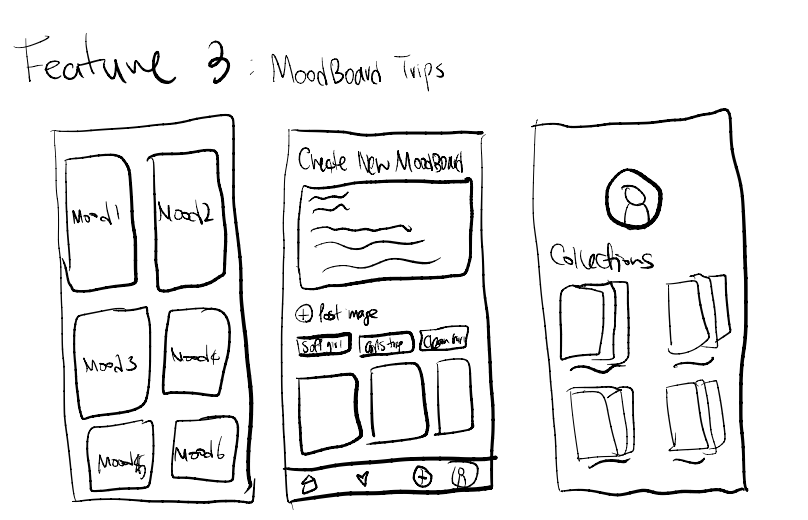 Feature 3: MoodBoard Trips
Mood1 Mood2
Mood3 Mood4
Mood5 Mood6
Create New MoodBoard
Post image
Soft girl Girls trip Clean
Collections